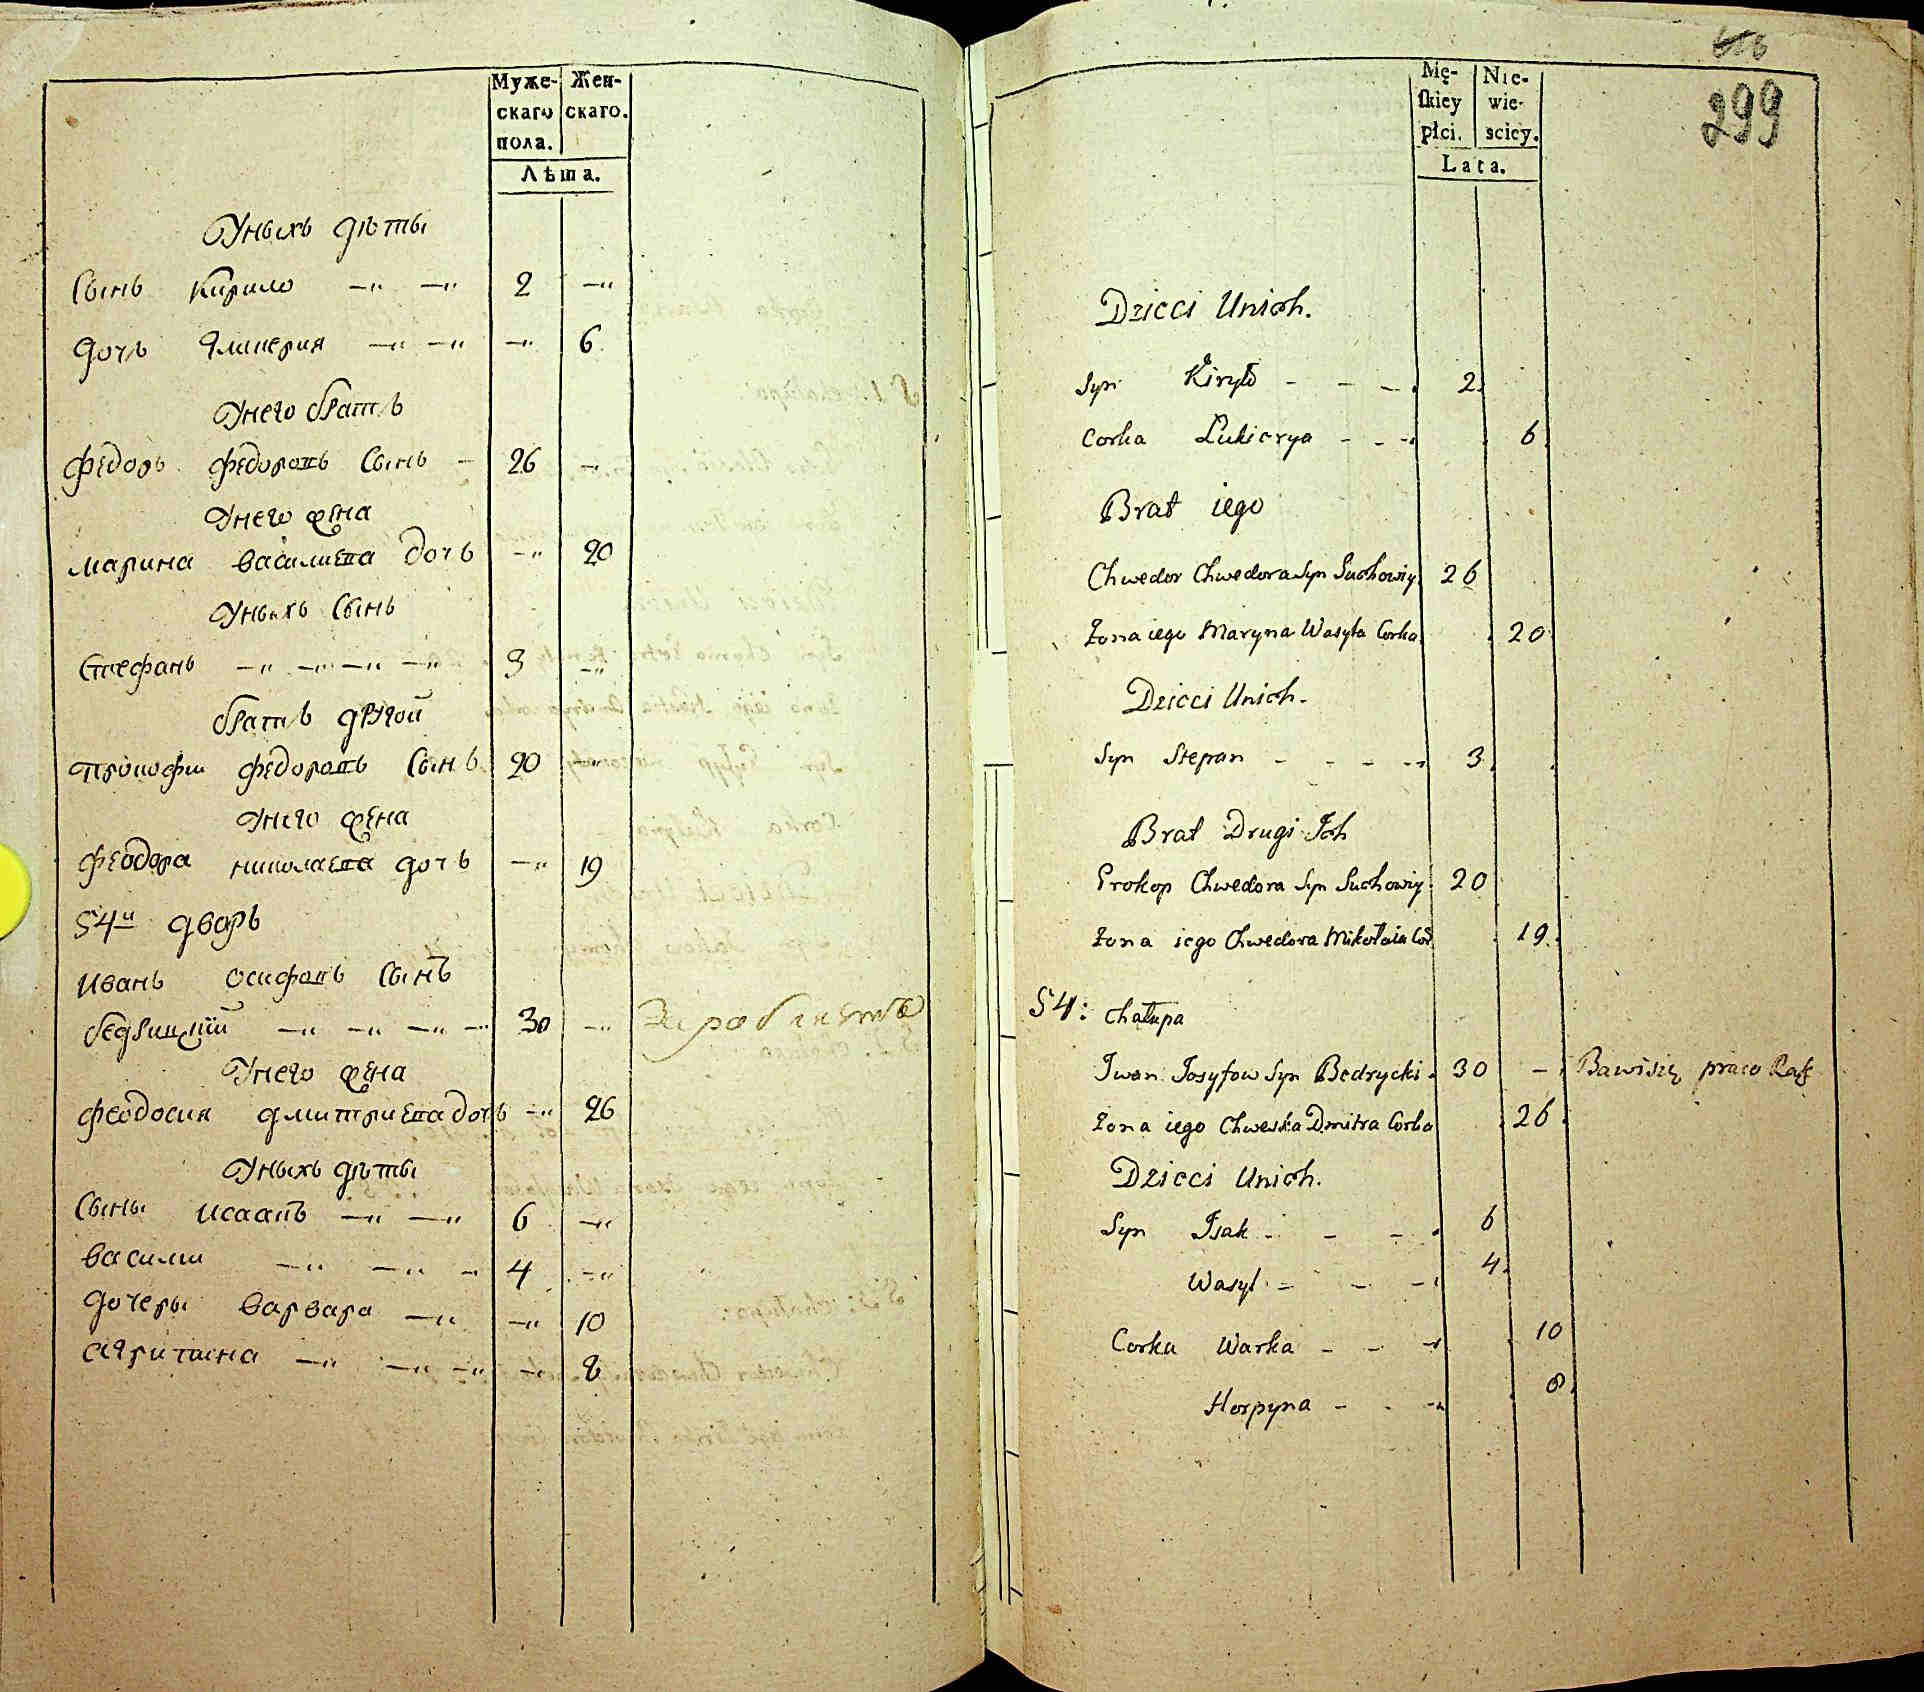 Муже-
скаго
пола.
Жен-
скаго.
Лѣта.
Уныхъ дѣты
Сынъ Кирило 2
дочь Гликерия 6
Унего братъ
Федоръ Федоровъ Сынъ 26
Унего жена
Марина василиева дочь 20
Уныхъ Сынъ
Стефанъ 3
братъ другой
Прокофии Федоровъ Сынъ 20
Унего жена
Феодора николаева дочь 19
54й дворъ
Иванъ Осифовъ Сынъ
бедрицкий 30
Унего жена
Феодосия дмитриева дочь 26
Уныхъ дѣты
Сыны Исаакъ 6
Василии 4
дочеры варвара 10
10
8
299
Mę-
skiey
płci.
Nie-
wie-
sciey.
Lata.
Dzieci Unich.
Syn Kiryło 2
Corka Lukierya 6
Brat iego
Chwedor Chwedora Syn Suchowiy 26
Żona iego Maryna Wasyla Corka 20
Dzieci Unich.
Syn Stepan 3
Brat Drugi Ich
Prokop Chwedora Syn Suchowiy 20
Żona iego Chwedora Mikołaia Cor 19
54: chałupa
Iwan Josyfow Syn Bedrycki 30 Bawi się praco Rąk
Żona iego Chweska Dmitra Corka 26
Dzieci Unich.
Syn Isak 6
Wasyl 4
Corka Warka 10
Horpyna 8